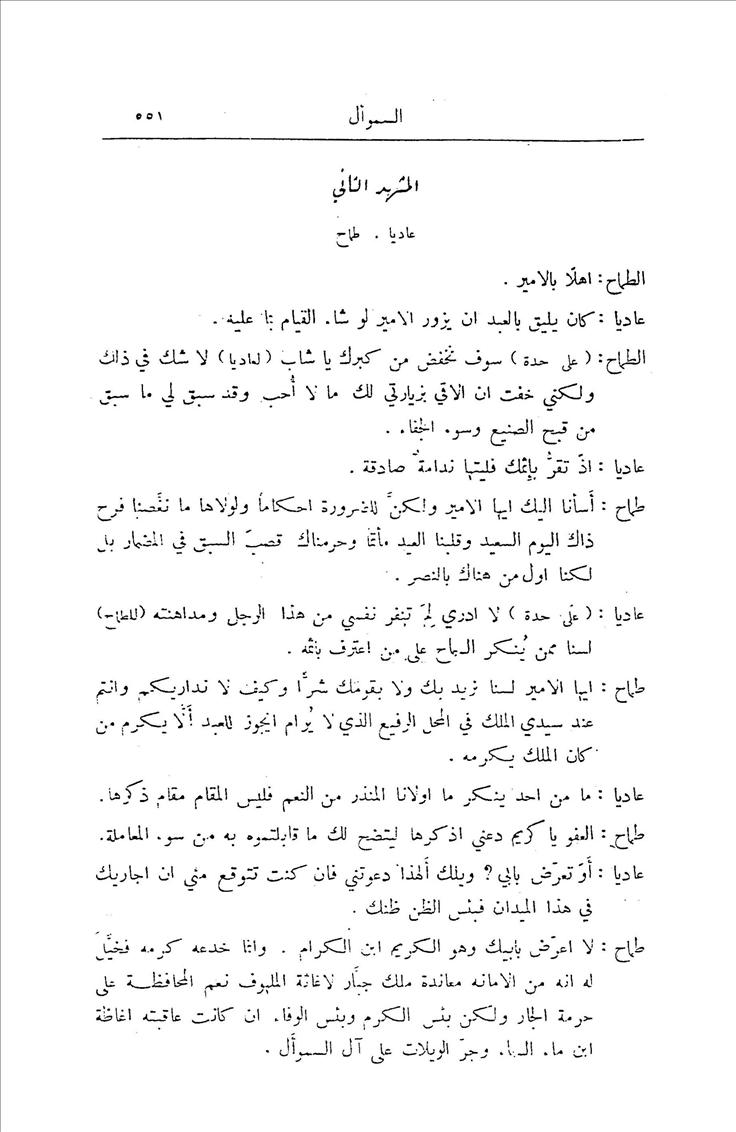 السموأل ٥٥١
المشهد الثاني
عاديا . طماح
الطماح : اهلًا بالامير .
عاديا : كان يليق بالعبد ان يزور الامير لو شاء القيام بما عليه .
الطماح : ( على حدة ) سوف نخفض من كبرك يا شاب ( لعاديا ) لا شك في ذاك
ولكني خفت ان الاقي بزيارتي لك ما لا أُحب وقد سبق لي ما سبق
من قبح الصنيع وسوء الجفاء .
عاديا : اذ تقرُّ بإثمك فليتها ندامةٌ صادقة .
طماح : أسأنا اليك ايها الامير ولكنَّ للضرورة احكاماً ولولاها ما نغَّصنا فرح
ذاك اليوم السعيد وقلبنا العيد مأتمًا وحرمناك قصبَ السبق في المضمار بل
لكنا اول من هناك بالنصر .
عاديا : ( على حدة ) لا ادري لِمَ تنفر نفسي من هذا الرجل ومداهنته ( للطماح )
لسنا ممن يُنكر السماح على من اعترف باثمه .
طماح : ايها الامير لسنا نريد بك ولا بقومك شرًّا وكيف لا نداريكم وانتم
عند سيدي الملك في المحل الرفيع الذي لا يُرام ايجوز للعبد ألَّا يكرم من
كان الملك يكرمه .
عاديا : ما من احد ينكر ما اولانا المنذر من النعم فليس المقام مقام ذكرها .
طماح : العفو يا كريم دعني اذكرها ليتضح لك ما قابلتموه به من سوء المعاملة .
عاديا : أوَ تعرّض بابي ؟ ويلك ألهذا دعوتني فان كنت تتوقع مني ان اجاريك
في هذا الميدان فبئس الظن ظنك .
طماح : لا اعرّض بأبيك وهو الكريم ابن الكرام . وانما خدعه كرمه فخيَّل
له انه من الامانه معاندة ملك جبَّار لاغاثة الملهوف نعم المحافظة على
حرمة الجار ولكن بئس الكرم وبئس الوفاء ان كانت عاقبته اغاظة
ابن ماء السماء وجرّ الويلات على آل السموأل .